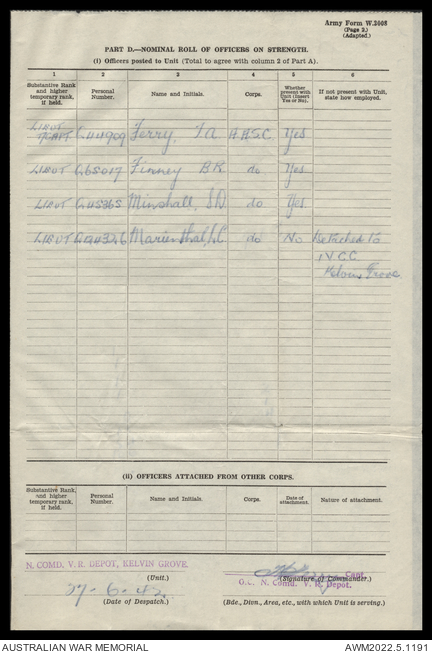 Army Form W.3008
(Page 2)
(Adapted.)
PART D.—NOMINAL ROLL OF OFFICERS ON STRENGTH.
(i) Officers posted to Unit (Total to agree with column 2 of Part A).
1 2 3 4 5 6
Substantive Rank and higher temporary rank, if held. Personal Number. Name and Initials. Corps. Whether present with Unit (Insert Yes or No). If not present with Unit, state how employed.
LIEUT
T/CAPT Q44909 Terry, T.A. A.A.S.C. Yes
LIEUT Q65017 Finney B.R. do Yes
LIEUT Q45365 Minshall, S.D. do Yes
LIEUT Marienthal, L.C. do No Detached to
1 V.C.C.
Kelvin Grove
(ii) OFFICERS ATTACHED FROM OTHER CORPS.
Substantive Rank, and higher temporary rank, if held. Personal Number. Name and Initials. Corps. Date of attachment. Nature of attachment.
N. COMD. V. R. DEPOT, KELVIN GROVE.
(Unit.)
Capt
(Signature of Commander.)
O.C. N. Comd. V. R. Depot.
27-6-42
(Date of Despatch.)
(Bde., Divn., Area, etc., with which Unit is serving.)
AUSTRALIAN WAR MEMORIAL
AWM2022.5.1191